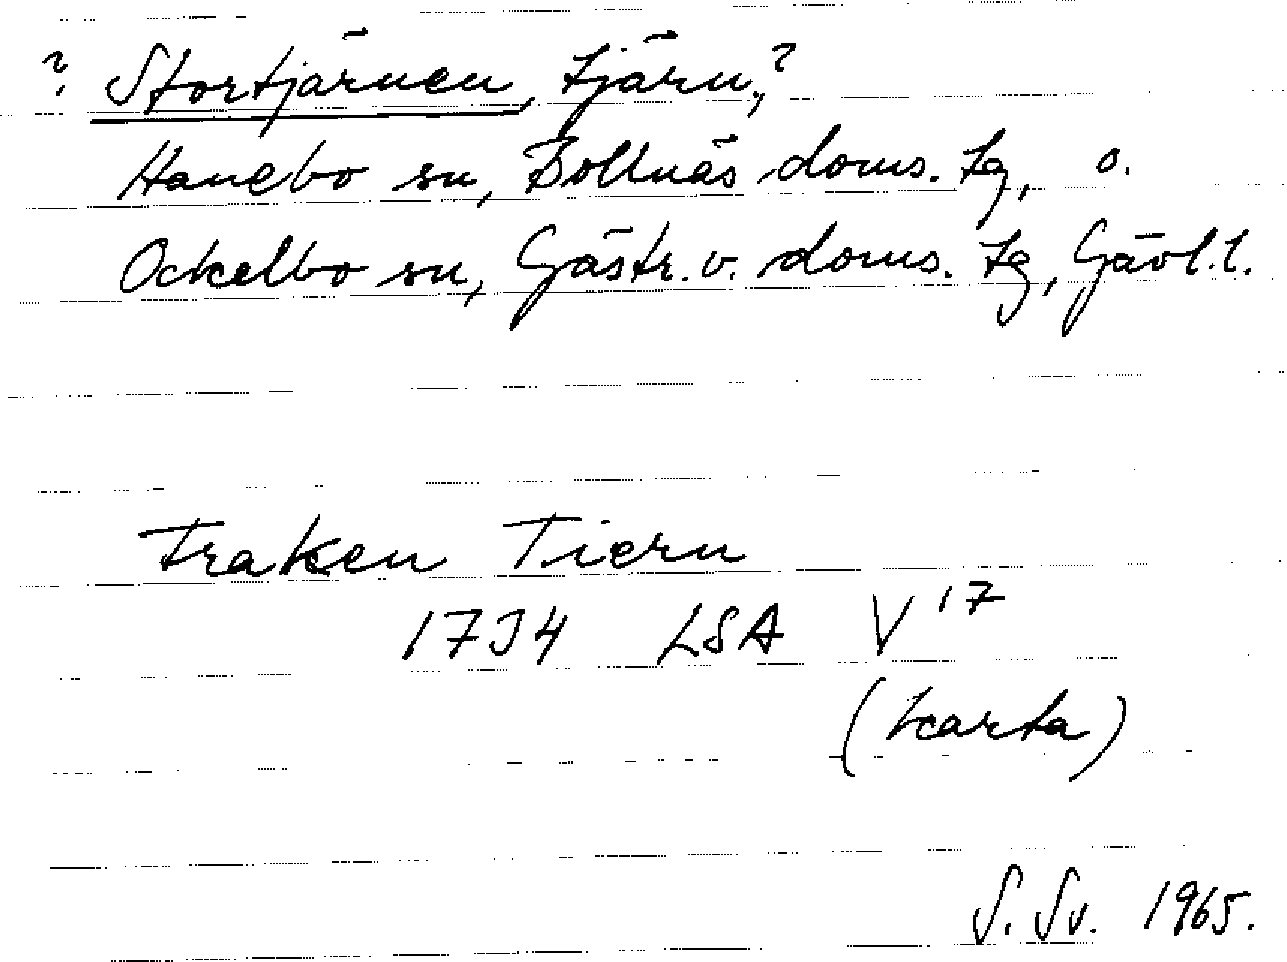 ? Stortjärnen, tjärn,?
Hanebo sn, Bollnäs doms. tg, o.
Ockelbo sn, Gästr. v. doms. tg, Gävl. l.
Fraken Tiern
1734 LSA V 17
(karta)
S. Sv. 1965.